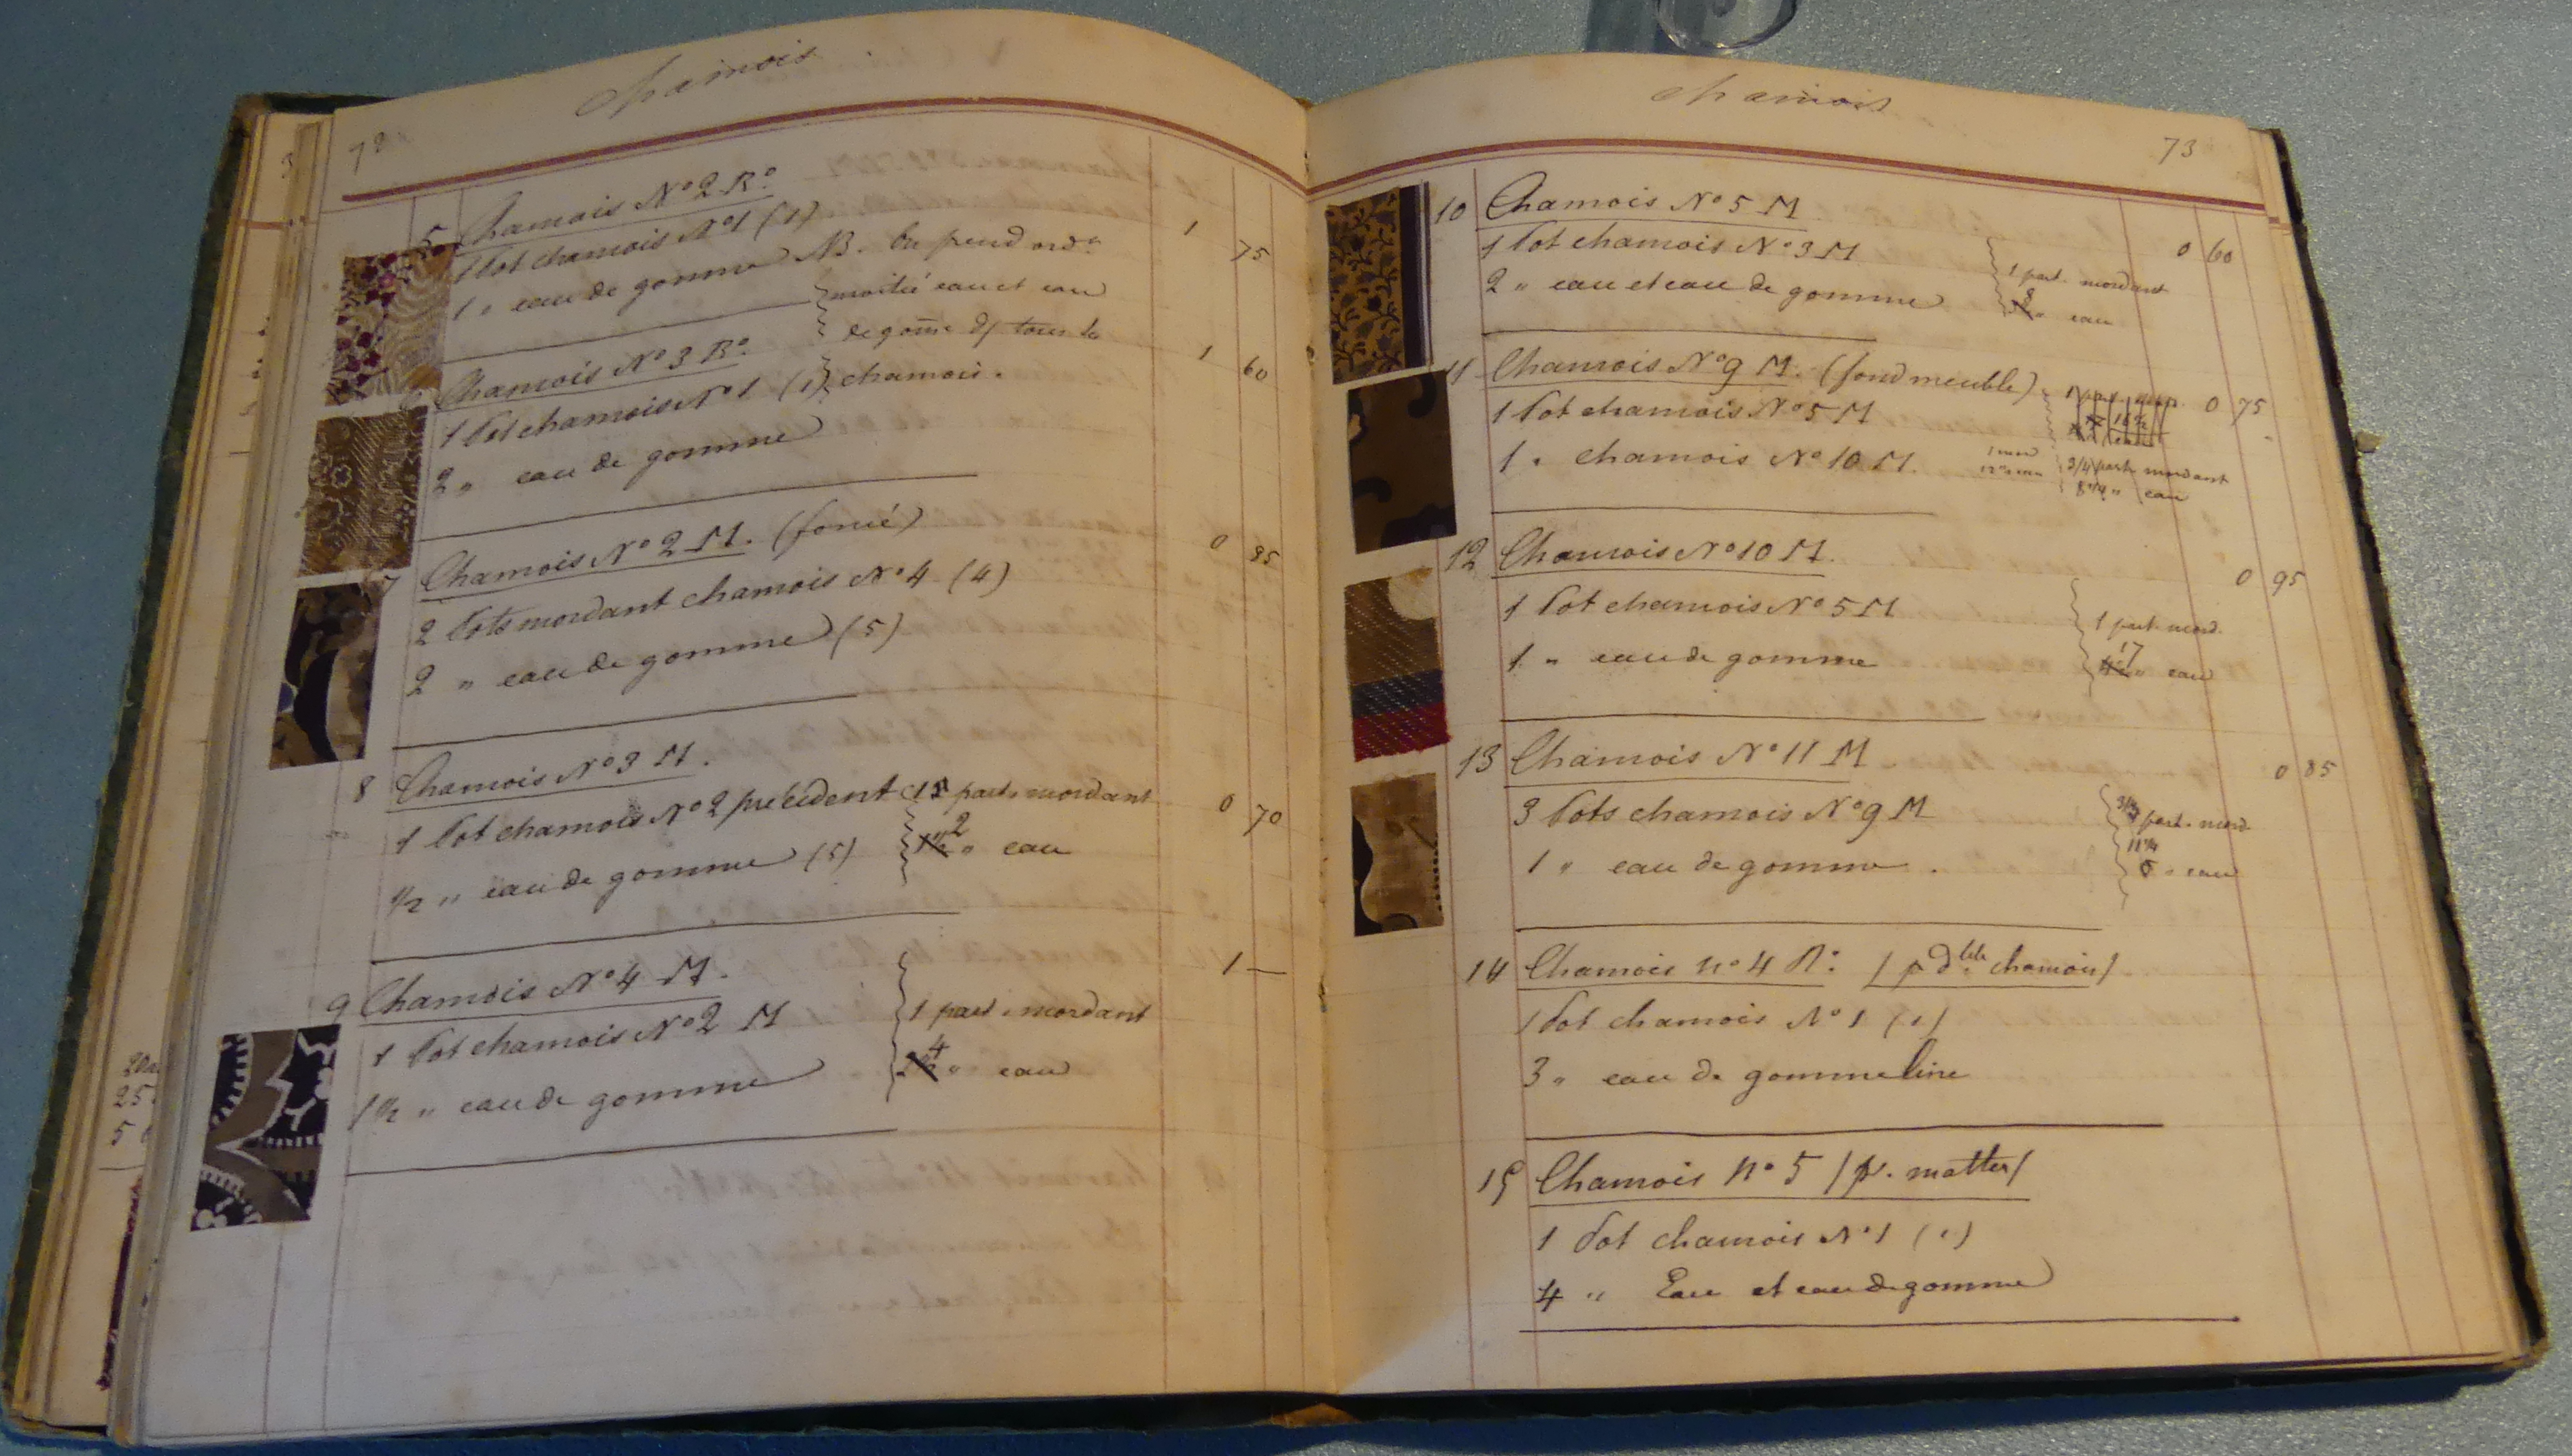 chamois
72
5 Chamois N° 2 R°.
1 Pot chamois N° 1 (1)
1 " eau de gomme NB. On prend ord.
moitié eau et eau
de gom̄e pr tous les
chamois.
1 75
6 Chamois N° 3 R°.
1 Pot chamois N° 1 (1)
2 " eau de gomme
1 60
7 Chamois N° 2 M. (foncé)
2 Pots mordant chamois N° 4 (4)
2 " eau de gomme (5)
0 85
8 Chamois N° 3 M.
1 Pot chamois N° 2 précédent
1/2 " eau de gomme (5)
1 part. mordant
2 " eau
0 70
9 Chamois N° 4 M.
1 Pot chamois N° 2 M
1 1/2 " eau de gomme
1 part. mordant
4 " eau
1 —
20
25
5
chamois
73
10 Chamois N° 5 M
1 Pot chamois N° 3 M
2 " eau et eau de gomme
1 part. mordant
8 " eau
0 60
11 Chamois N° 9 M. (fond meuble)
1 Pot chamois N° 5 M
1 " chamois N° 10 M.
1 mord
3/4 part. mordant
8 3/4 " eau
0 75
12 Chamois N° 10 M.
1 Pot chamois N° 5 M
1 " eau de gomme
1 part. mord.
17 " eau
0 95
13 Chamois N° 11 M
3 Pots chamois N° 9 M
1 " eau de gomme.
part. mord.
11 1/4
" eau
0 85
14 Chamois n° 4 R°. / p dble chamois /
1 Pot chamois N° 1 (1)
3 " eau de gommeline
15 Chamois n° 5 / pr. matter /
1 Pot chamois N° 1 (1)
4 " Eau et eau de gomme